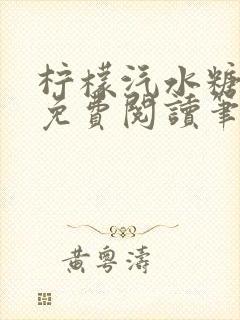 柠檬汽水糖
免費閱讀筆
黄粵濤